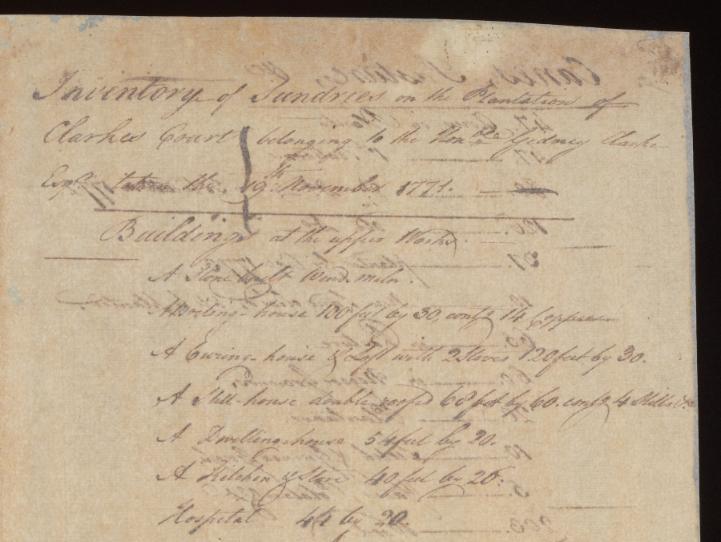 Inventory of Sundries on the Plantation of
Clarkes Court belonging to the Honble Gedney Clarke
Esqr. taken the 19th November 1771.
Buildings at the upper Works.
A Stone built Wind miln.
A Boiling-house 100 feet by 30, contg 14 Coppers
A Curing-house & Loft with 2 Stoves 120 feet by 30.
A Still-house double roofed 68 feet by 60. contg 4 Stills &ca
A Dwelling-house 54 feet by 20.
A Kitchen & Store 40 feet by 20.
Hospital 44 by 20.